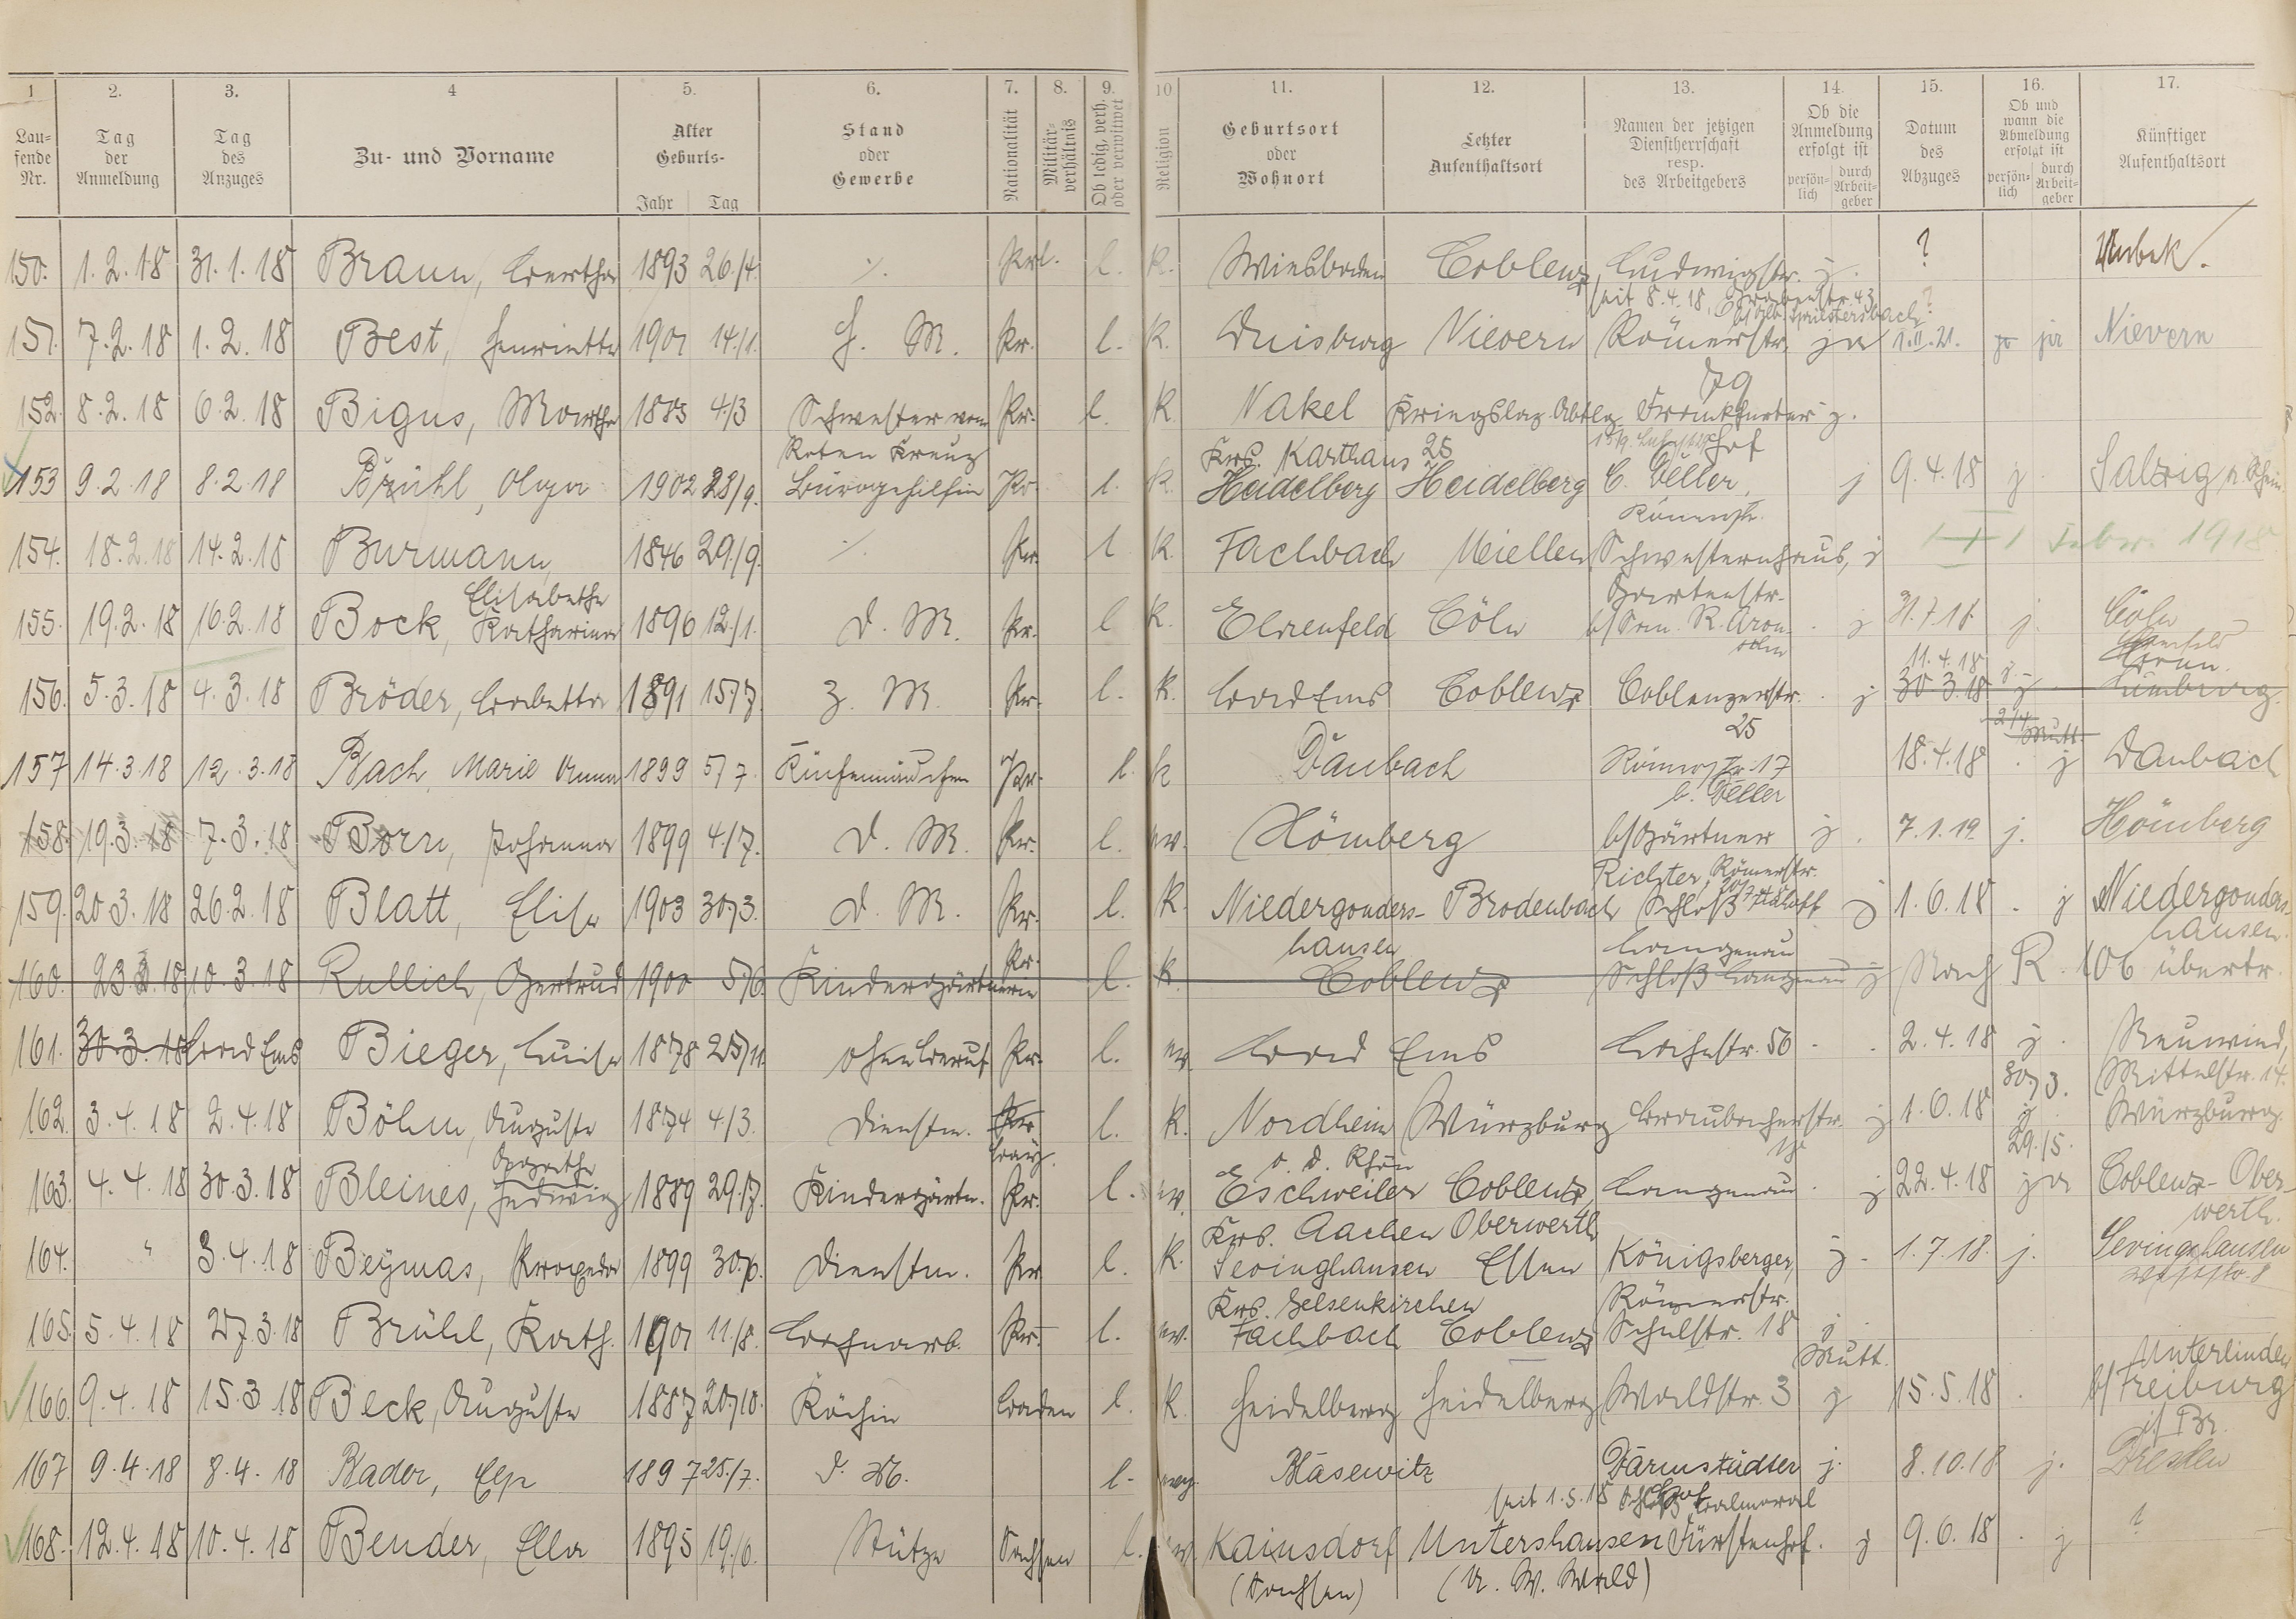 1 2. 3. 4 5. 6. 7. 8. 9. 10 11. 12. 13. 14. 15. 16. 17.
Lau-
fende
Nr.
Tag
der
Anmeldung
Tag
des
Anzuges
Zu- und Vorname
Alter
Geburts-
Jahr Tag
Stand
oder
Gewerbe
Nationalität
Militär-
verhältnis
Ob ledig, verh.
oder verwitwet
Religion
Geburtsort
oder
Wohnort
Letzter
Aufenthaltsort
Namen der jetzigen
Dienstherrschaft
resp.
des Arbeitgebers
Ob die
Anmeldung
erfolgt ist
persön-
lich
durch
Arbeit-
geber
Datum
des
Abzuges
Ob und
wann die
Abmeldung
erfolgt ist
persön-
lich
durch
Arbeit-
geber
Künftiger
Aufenthaltsort
150. 1.2.18 31.1.18 Braun, Bertha 1893 26./4. ./. l. K. Wiesbaden Coblenz, Ludwigstr. j. ? Unbek.
seit 8.4.18, Grabenstr. 43
151. 7.2.18 1.2.18 Best, Henriette 1901 14./1. H. M. Pr. l. K. Duisburg Nievern Römerstr. ja 1.11.21. ja Nievern
152. 8.2.18 6.2.18 Bigus, Martha 1885 4./3 Schwester vom Pr. l. K Nakel Kriegslaz. Abtlg. Frankfurter j.
Roten Kreuz Krs. Karthaus 25 hof
153 9.2.18 8.2.18 Brühl, Olga 1902 28/9. Bürogehilfin Pr. l. K. Heidelberg Heidelberg C. Deller, j 9.4.18 j. Salzig a. Rhein
Römerstr.
154. 18.2.18 14.2.18 Burmann, 1846 29./9. ./. Pr. l K. Fachbach Miellen Schwesternhaus, j Febr. 1918
Elisabethe Gartenstr.
155. 19.2.18 16.2.18 Bock, Katharina 1896 12./1. D. M. Pr. l K. Ehrenfeld Cöln b/Sem. R. Aron- j 31.7.18 j. Cöln
sohn Ehrenfeld
11.4.18
156. 5.3.18 4.3.18 Bröder, Babette 1891 15./7. Z. M. Pr. l. K. Bad Ems Coblenz Coblenzerstr. j 30.3.18 j Limburg.
25 2/4 Mutt.
157 14.3.18 12.3.18 Bach, Marie Anna 1899 5/7. Küchenmädchen Pr. l. k Daubach Römerstr. 17 18.4.18 j Daubach
b. Deller
158. 19.3.18 7.3.18 Born, Johanna 1899 4./7. D. M. Pr. l. ev. Hömberg b/Gärtner j. 7.1.19. j. Hömberg
Richter, Römerstr.
159. 20.3.18 26.2.18 Blatt, Elise 1903 30./3. D. M. Pr. l. K. Niedergonders- Brodenbach Schloß j 1.6.18 . j Niedergonders-
hausen Langenau hausen.
160. 23.3.18 10.3.18 Rullich, Gertrud 1900 5./6. Kindergärtnerin Pr. l. K. Coblenz Schloß Langenau j Nach R. 106 übertr.
161. 30.3.18 Bad Ems Bieger, Luise 1878 25/11. ohne Beruf Pr. l. ev. Bad Ems Bachstr. 56 . . 2.4.18 j. Neuwied,
30./3. Mittelstr. 14.
162. 3.4.18 2.4.18 Böhm, Auguste 1874 4./3. Dienstm. Pr. l. K. Nordheim Würzburg Braubacherstr. j 1.6.18 j Würzburg.
Agathe Bay. v. d. Rhön 29./5.
163. 4.4.18 30.3.18 Bleines, Hedwig 1889 29./7. Kindergärtn. Pr. l. ev. Eschweiler Coblenz, Langenau j 22.4.18 ja Coblenz-Ober-
Krs. Aachen Oberwerth werth.
164. " 3.4.18 Beymas, Praxeda 1899 30./6. Dienstm. Pr l. K. Sevinghausen Essen Königsberger, j. 1.7.18. j. Sevinghausen
Krs. Gelsenkirchen Römerstr.
165. 5.4.18 27.3.18 Brühl, Kath. 1901 11./8. Pr. l. ev. Fachbach Coblenz Schulstr. 18 j
Mutt. Unterlinden
166. 9.4.18 15.3.18 Beck, Auguste 1887 20./10. Köchin Baden l. K. Heidelberg Heidelberg Waldstr. 3 j 15.5.18 b/Freiburg
i/ Br.
167 9.4.18 8.4.18 Bader, Else 1897 25./7. D. M. l. evg. Blasewitz Darmstädter j. 8.10.18 j. Dresden
seit 1.5.18 Schloß Balmoral Hof
168. 12.4.18 10.4.18 Bender, Ella 1895 19./6. Stütze Sachsen l. ev. Kainsdorf Untershausen Fürstenhof. j 9.6.18 . j ?
(Sachsen) (U. W. Wald)